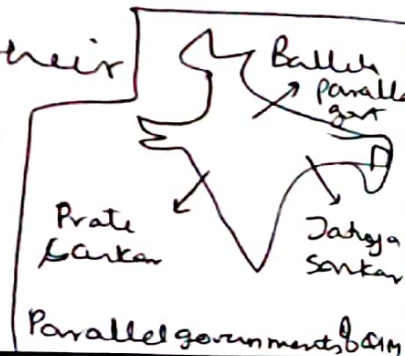 their
Ballia
parallel
govt
Prati
Sarkar
Jatiya
Sarkar
Parallel governments of QIM